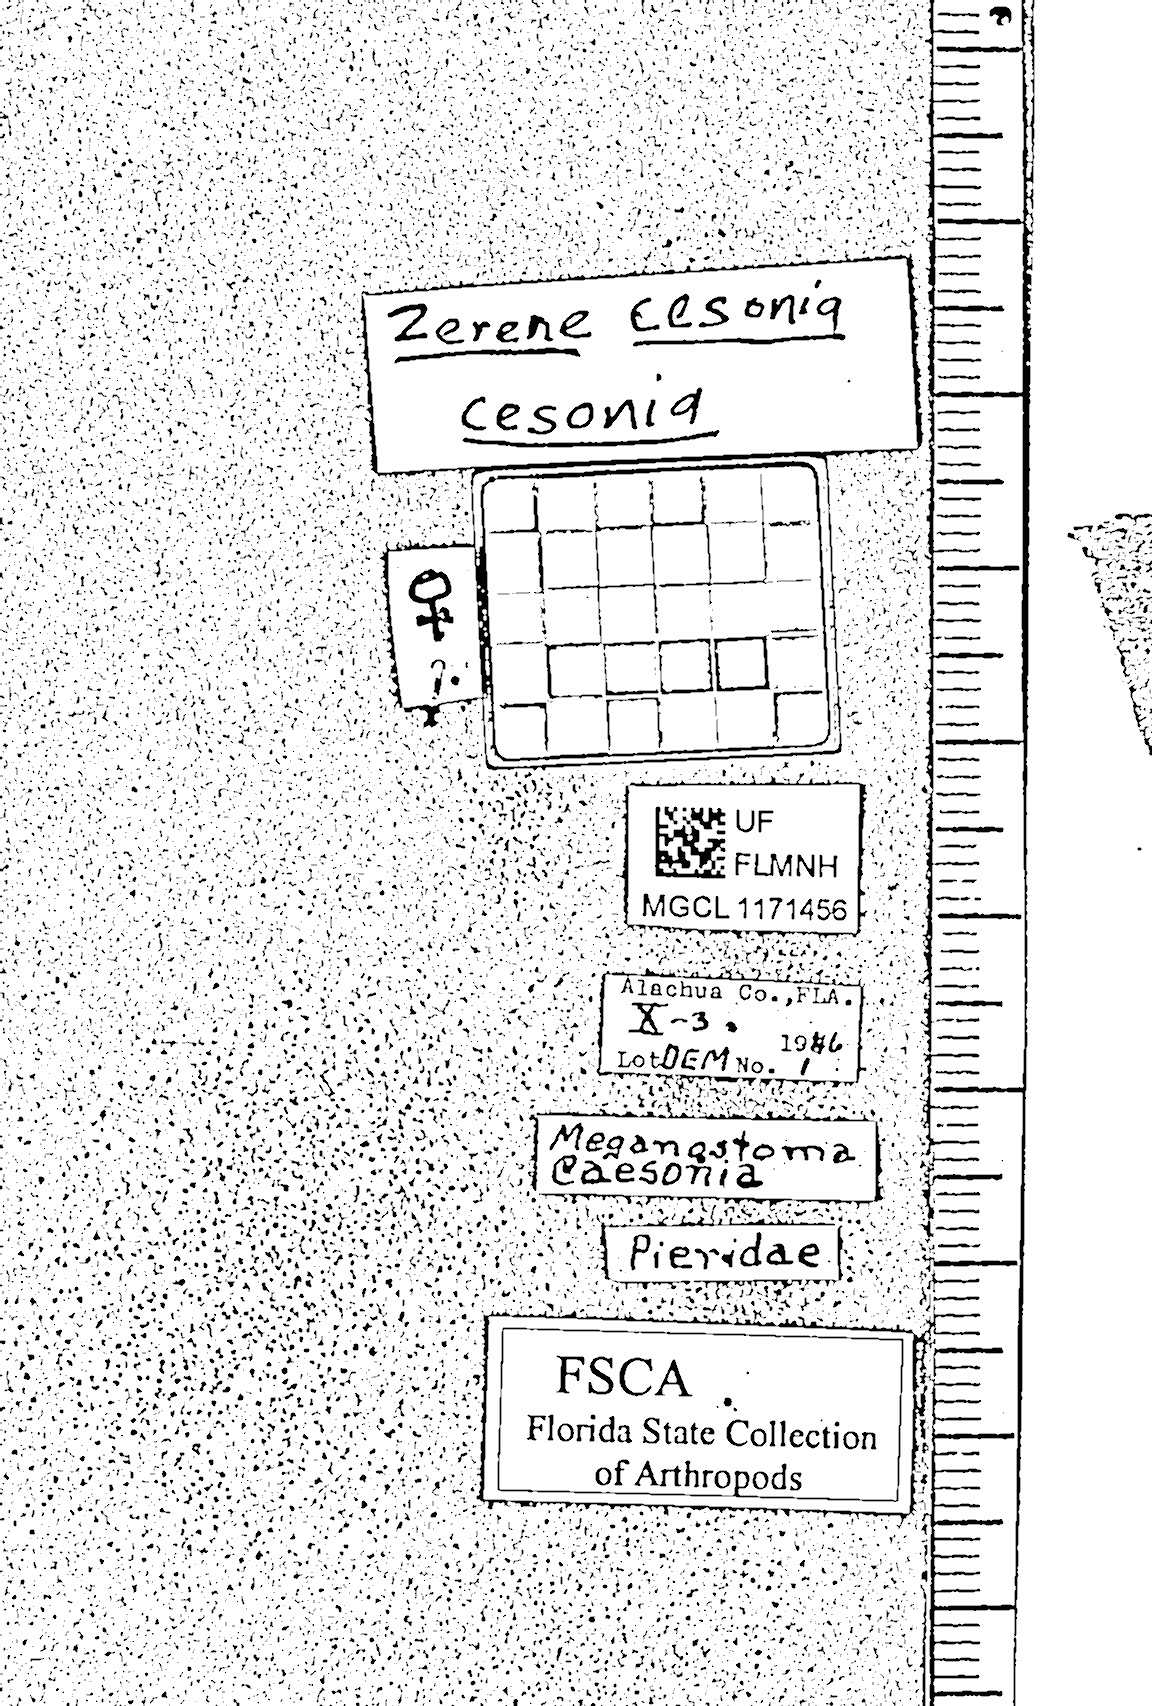 Zerene cesonia
cesonia
♀
?
UF
FLMNH
MGCL 1171456
Alachua Co., FLA.
X-3.
1946
Lot DEM No. 1
Meganostoma
Caesonia
Pieridae
FSCA
Florida State Collection
of Arthropods